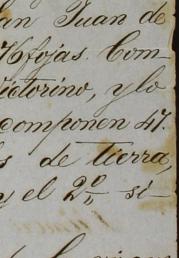 San Juan de
Hojas. Com-
ictorino, y lo
componen 47.
s de tierra,
y el 2º si-